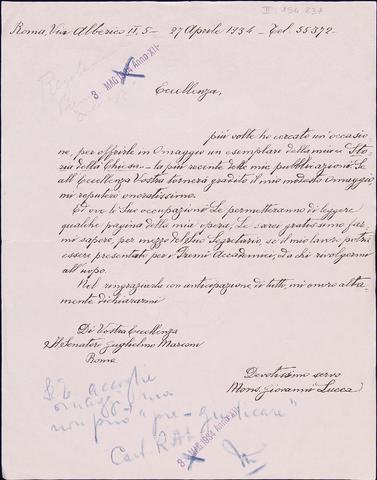 II 194 237
Roma, Via Alberico II, 5 - 27 Aprile 1934 - Tel. 55372
3 MAG 1934 ANNO XII
Eccellenza,
più volte ho cercato un'occasio
ne, per offrirle in omaggio un esemplare della mia "Sto
ria della Chiesa" - la più recente delle mie pubblicazioni. Se
all'Eccellenza Vostra tornerà gradito il mio modesto omaggio,
mi reputerò onoratissimo.
Ed ove le Sue occupazioni Le permetteranno di leggere
qualche pagina della mia opera, Le sarei gratissimo far
mi sapere, per mezzo del Suo Segretario, se il mio lavoro potrà
essere presentato per i Premi Accademici, ed a chi rivolgermi
all'uopo.
Nel ringraziarLa con anticipazione di tutto, mi onoro alta
mente dichiararmi
Di Vostra Eccellenza
Senatore Guglielmo Marconi
Roma
Devotissimo servo
Mons. Giovanni Lucca
Si accoglie
omaggio ma
non può "pre-giudicare"
Card. R. A. I.
3 MAG 1934 ANNO XII